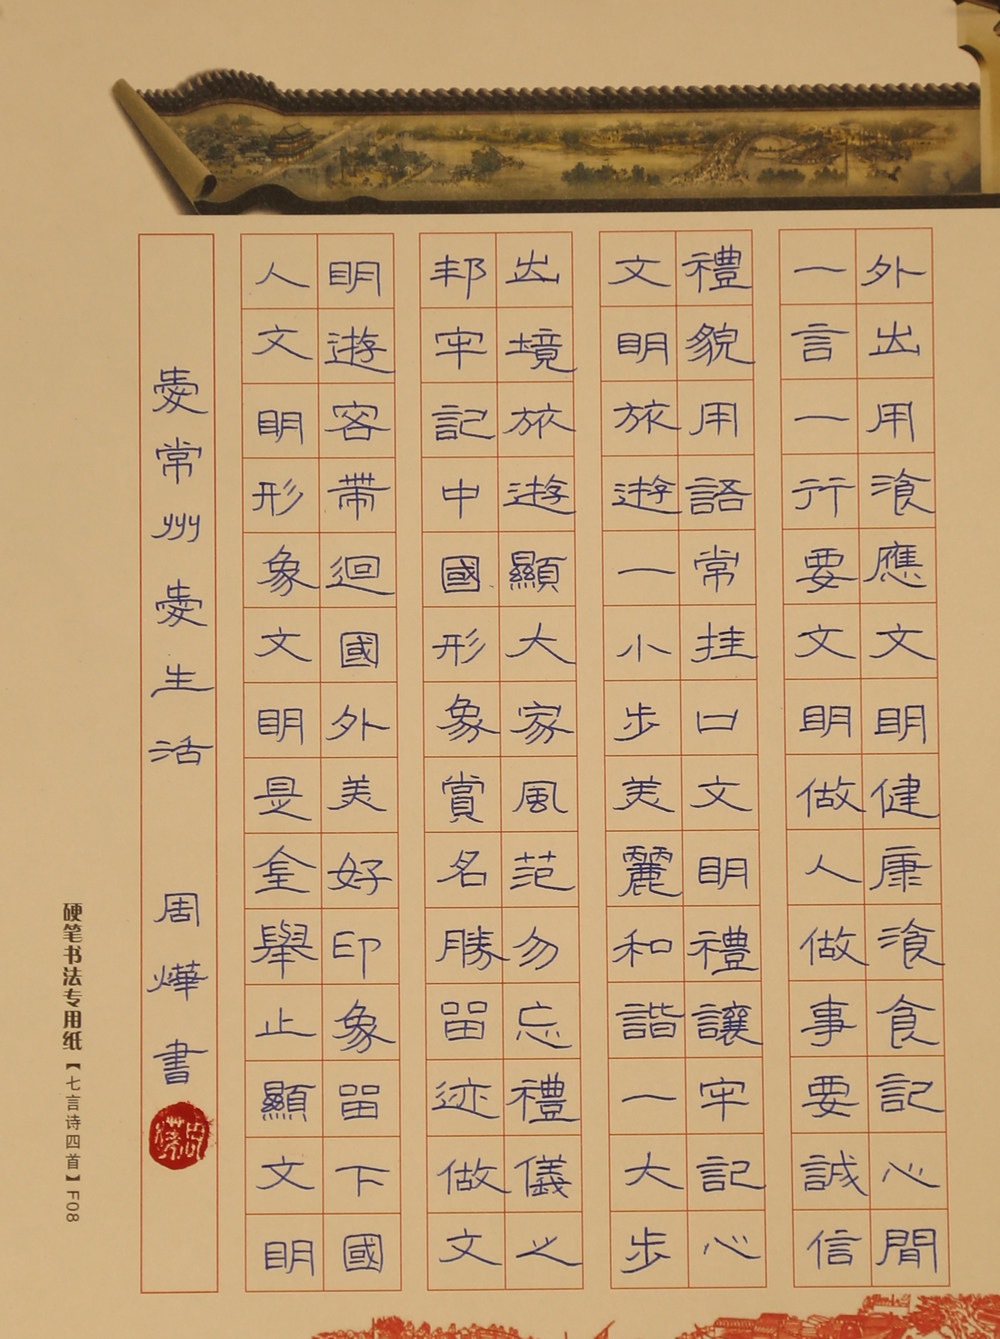 外出用飡應文明健康飡食記心間
一言一行要文明做人做事要誠信
禮貌用語常挂口文明禮讓牢記心
文明旅遊一小步美麗和諧一大步
出境旅遊顯大家風范勿忘禮儀之
邦牢記中國形象賞名勝留迹做文
明遊客帶迴國外美好印象留下國
人文明形象文明是全舉止顯文明
愛常州愛生活 周燁書
硬笔书法专用纸【七言诗四首】F08